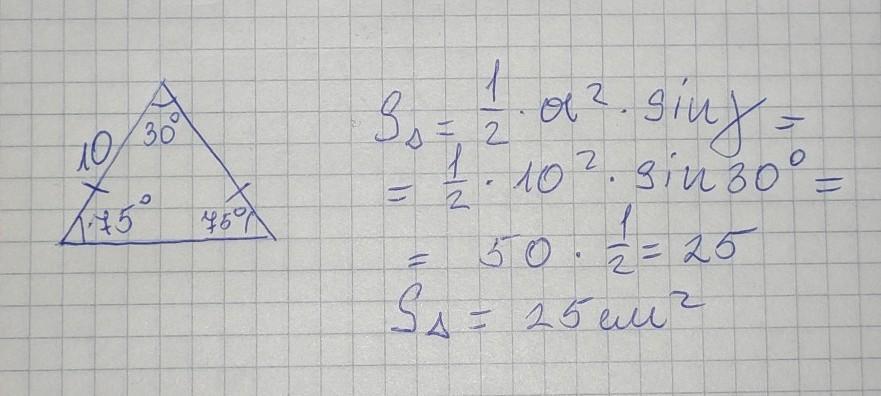 10
30°
75°
75°
S△ = 1/2 · a² · sin γ =
= 1/2 · 10² · sin 30° =
= 50 · 1/2 = 25
S△ = 25 см²